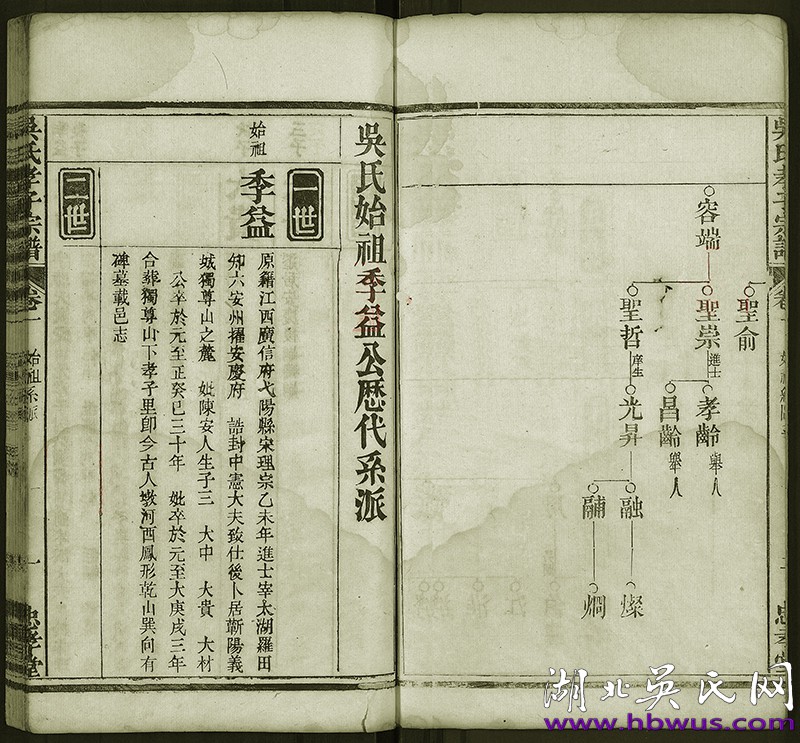 吳氏孝子宗譜
卷一
忠孝堂
容端
聖俞
聖崇
進士
聖哲
庠生
孝齡
舉人
昌齡
舉人
光昇
融
燦
烱
吳氏始祖季益公歷代系派
一世
始祖
季益
原籍江西廣信府弋陽縣宋理宗乙未年進士宰太湖羅田
知六安州擢安慶府 誥封中憲大夫致仕後卜居蘄陽義
城獨尊山之麓 妣陳安人生子三 大中 大貴 大材
公卒於元至正癸巳三十年 妣卒於元至大庚戌三年
合葬獨尊山下孝子里卽今古人墩河西鳳形乾山巽向有
碑墓載邑志
二世
吳氏孝子宗譜
卷一
始祖系派
一
忠孝堂
湖北吴氏网
www.hbwus.com